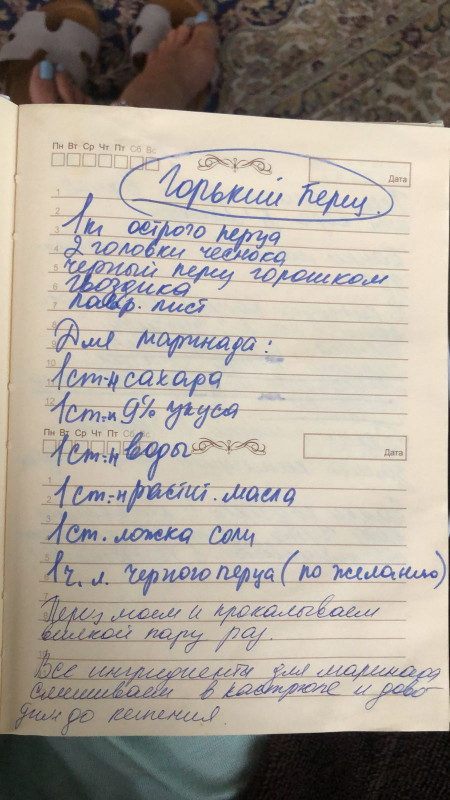 Пн Вт Ср Чт Пт Сб Вс
Дата
Горький перец.
1 кг острого перца
2 головки чеснока
черный перец горошком
гвоздика
лавр. лист
Для маринада:
1 ст-н сахара
1 ст-н 9% уксуса
Пн Вт Ср Чт Пт Сб Вс
Дата
1 ст-н воды
1 ст-н растит. масла
1 ст. ложка соли
1 ч. л. черного перца (по желанию)
Перец моем и прокалываем
вилкой пару раз.
Все ингридиенты для маринада
смешиваем в кастрюле и дово
дим до кипения.